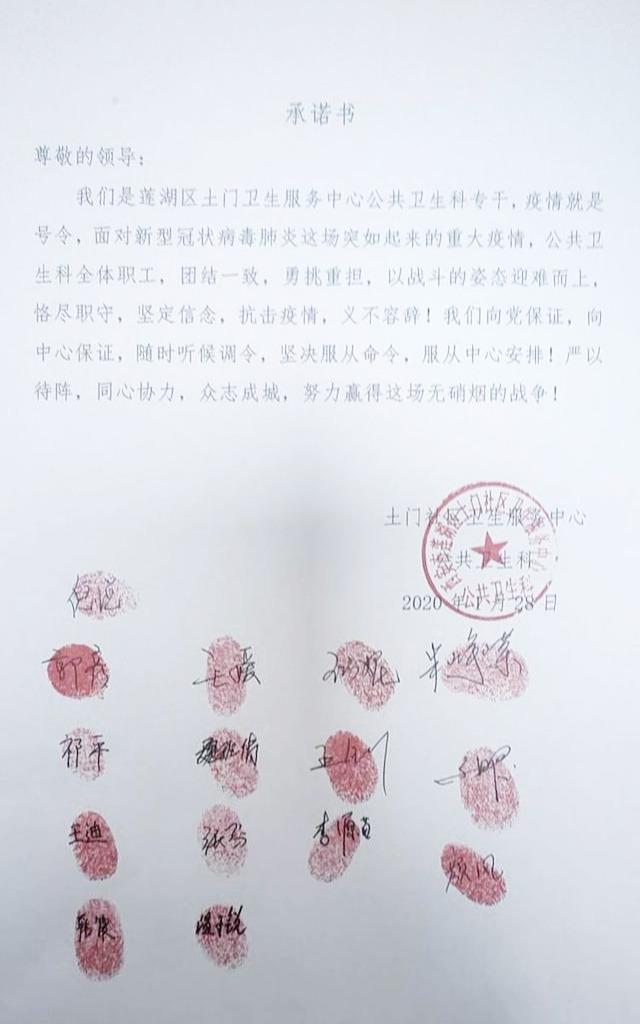 承诺书
尊敬的领导：
我们是莲湖区土门卫生服务中心公共卫生科专干，疫情就是
号令，面对新型冠状病毒肺炎这场突如起来的重大疫情，公共卫
生科全体职工，团结一致，勇挑重担，以战斗的姿态迎难而上，
恪尽职守，坚定信念，抗击疫情，义不容辞！我们向党保证，向
中心保证，随时听候调令，坚决服从命令，服从中心安排！严以
待阵，同心协力，众志成城，努力赢得这场无硝烟的战争！
土门社区卫生服务中心
公共卫生科
2020 年 1 月 28 日
公共卫生科
王媛
祁平
王迪